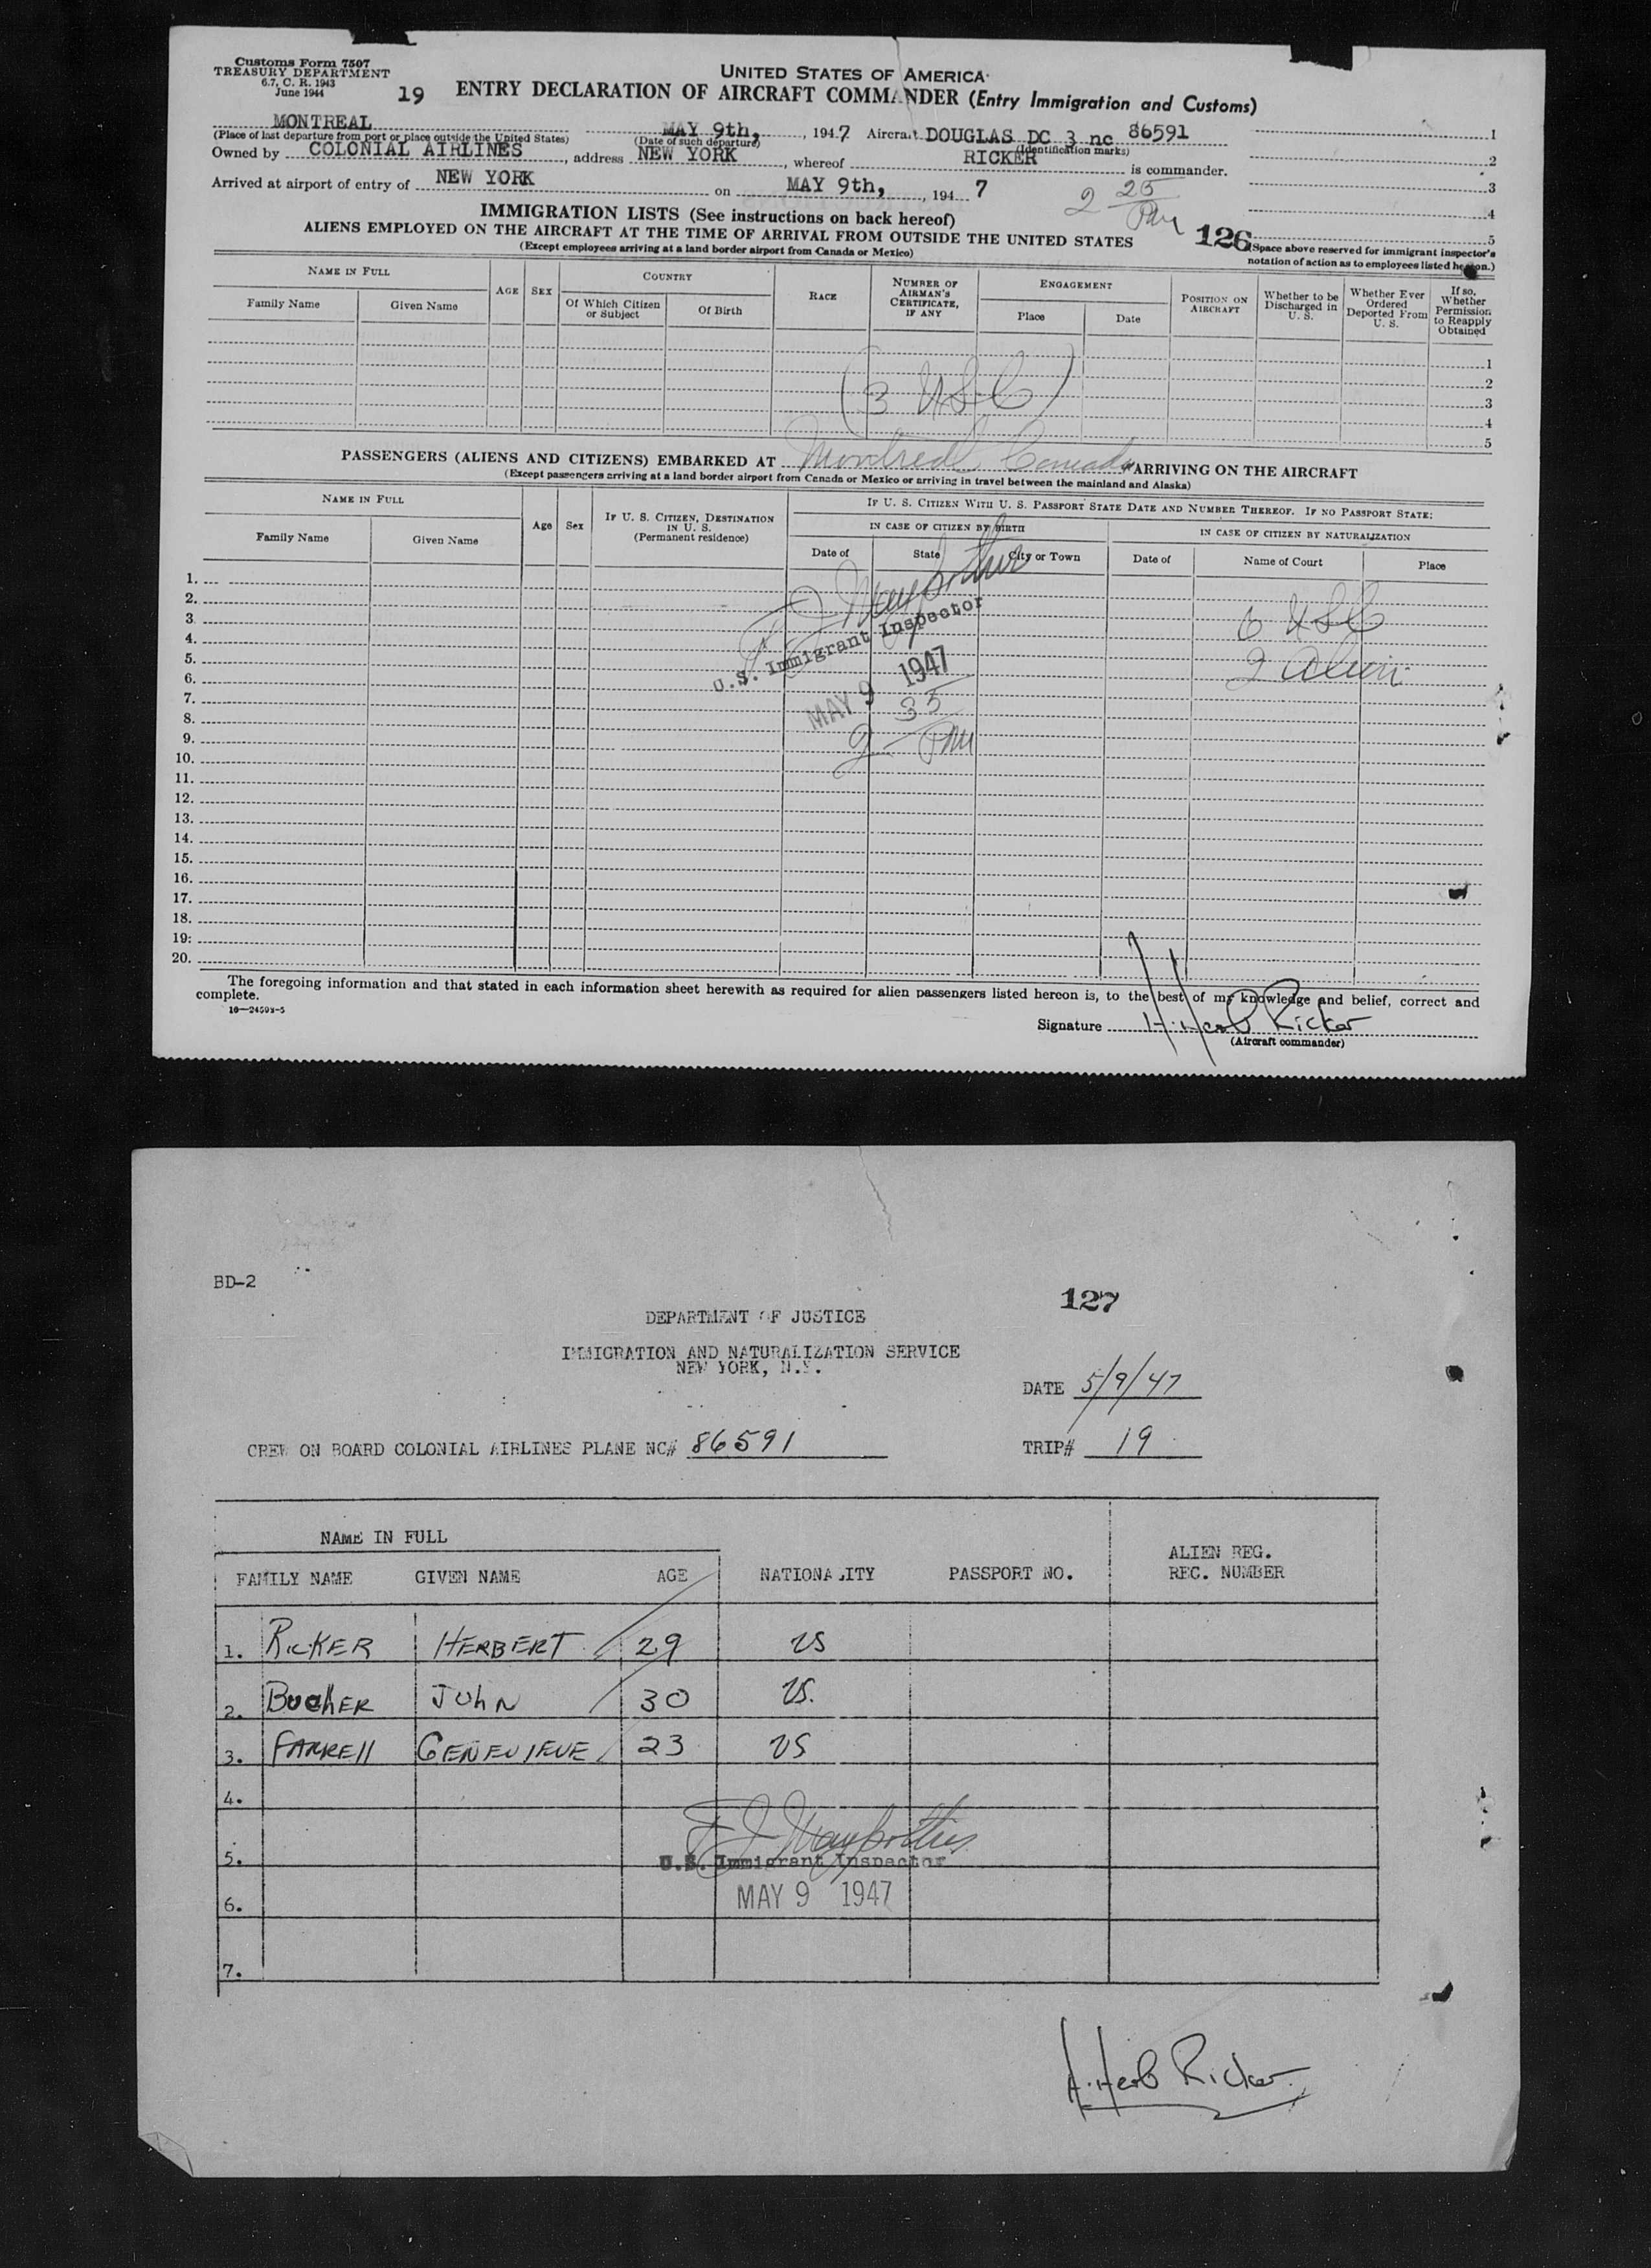 Customs Form 7507
TREASURY DEPARTMENT
6.7, C. R. 1943
June 1944
19
UNITED STATES OF AMERICA
ENTRY DECLARATION OF AIRCRAFT COMMANDER (Entry Immigration and Customs)
MONTREAL MAY 9th, , 1947 Aircraft DOUGLAS DC 3 nc 86591 1
(Place of last departure from port or place outside the United States) (Date of such departure) (Identification marks)
Owned by COLONIAL AIRLINES , address NEW YORK , whereof RICKER is commander. 2
Arrived at airport of entry of NEW YORK on MAY 9th, , 194 7 3
2 25 PM 4
IMMIGRATION LISTS (See instructions on back hereof)
ALIENS EMPLOYED ON THE AIRCRAFT AT THE TIME OF ARRIVAL FROM OUTSIDE THE UNITED STATES 126 5
(Except employees arriving at a land border airport from Canada or Mexico)
(Space above reserved for immigrant inspector's
notation of action as to employees listed hereon.)
NAME IN FULL AGE SEX COUNTRY RACE NUMBER OF AIRMAN'S CERTIFICATE, IF ANY ENGAGEMENT POSITION ON AIRCRAFT Whether to be Discharged in U. S. Whether Ever Ordered Deported From U. S. If so, Whether Permission to Reapply Obtained
Family Name Given Name Of Which Citizen or Subject Of Birth Place Date
1
2
(3 USC)
3
4
5
PASSENGERS (ALIENS AND CITIZENS) EMBARKED AT Montreal Canada ARRIVING ON THE AIRCRAFT
(Except passengers arriving at a land border airport from Canada or Mexico or arriving in travel between the mainland and Alaska)
NAME IN FULL Age Sex IF U. S. CITIZEN, DESTINATION IN U. S. (Permanent residence) IF U. S. CITIZEN WITH U. S. PASSPORT STATE DATE AND NUMBER THEREOF. IF NO PASSPORT STATE:
IN CASE OF CITIZEN BY BIRTH IN CASE OF CITIZEN BY NATURALIZATION
Family Name Given Name Date of State City or Town Date of Name of Court Place
1.
2.
3. 6 USC
4.
U.S. Immigrant Inspector
5. 2 Alien
6.
MAY 9 1947
7.
8. 2 35 PM
9.
10.
11.
12.
13.
14.
15.
16.
17.
18.
19.
20.
The foregoing information and that stated in each information sheet herewith as required for alien passengers listed hereon is, to the best of my knowledge and belief, correct and
complete.
16—24593-5
Signature H. Herb Ricker
(Aircraft commander)
BD-2
127
DEPARTMENT OF JUSTICE
IMMIGRATION AND NATURALIZATION SERVICE
NEW YORK, N.Y.
DATE 5/9/47
CREW ON BOARD COLONIAL AIRLINES PLANE NC# 86591 TRIP# 19
NAME IN FULL
FAMILY NAME GIVEN NAME AGE NATIONALITY PASSPORT NO. ALIEN REG. REC. NUMBER
1. RICKER HERBERT 29 US
2. BUCHER JOHN 30 US.
3. FARRELL GENEVIEVE 23 US
4.
5.
U.S. Immigrant Inspector
MAY 9 1947
6.
7.
H. Herb Ricker